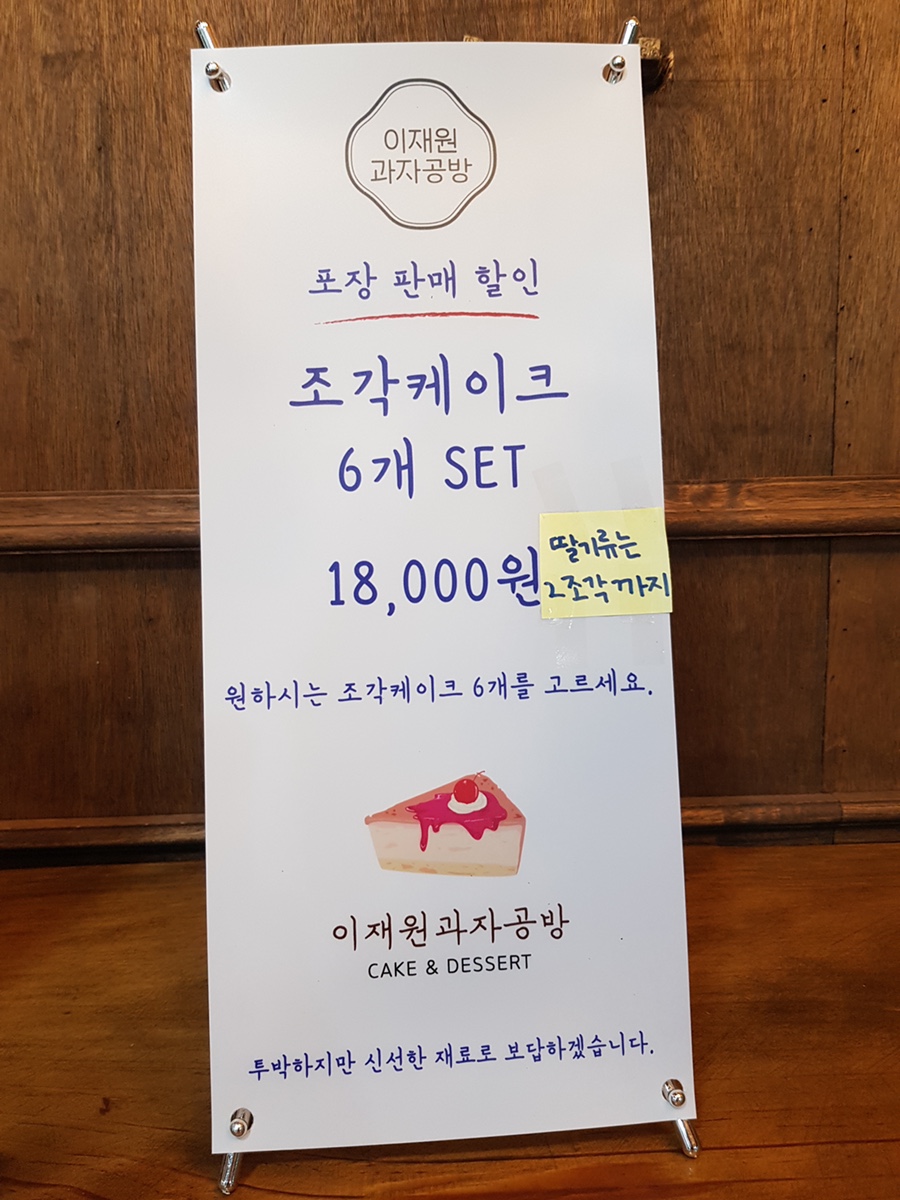 이재원
과자공방
포장 판매 할인
조각케이크
6개 SET
18,000원
딸기류는
2조각까지
원하시는 조각케이크 6개를 고르세요.
이재원과자공방
CAKE & DESSERT
투박하지만 신선한 재료로 보답하겠습니다.